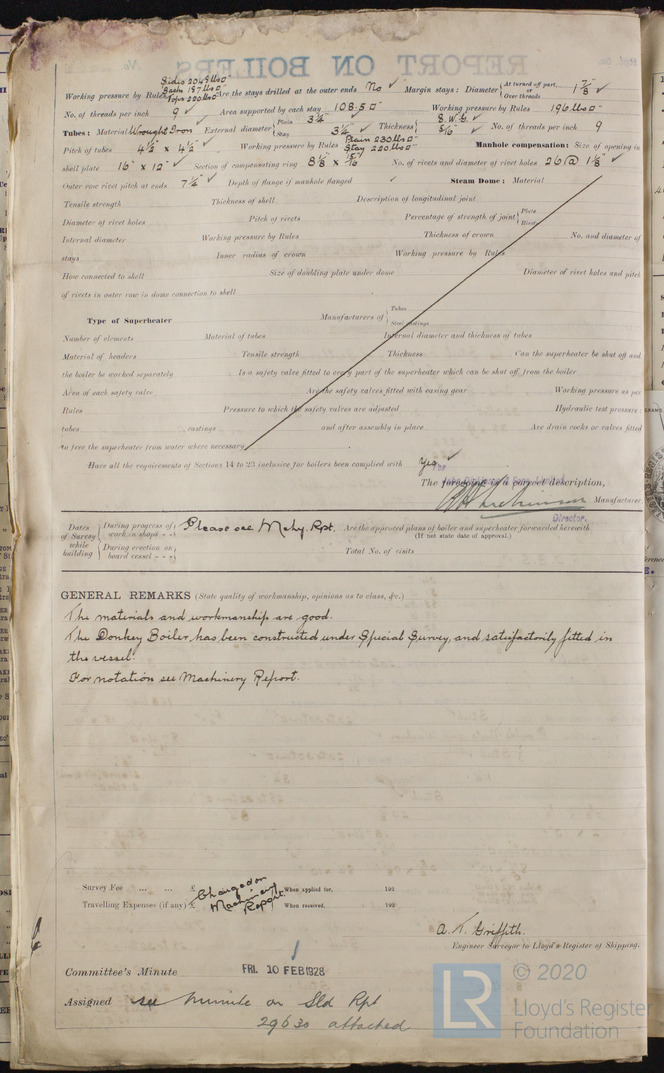 REPORT ON BOILERS
Sides 204 lbs □"
Backs 187 lbs □"
Working pressure by Rules Tops 220 lbs □" Are the stays drilled at the outer ends No ✓ Margin stays: Diameter { At turned off part, or Over threads 1 7/8" ✓
No. of threads per inch 9 ✓ Area supported by each stay 108.5 □" Working pressure by Rules 196 lbs □"
Tubes: Material Wrought Iron External diameter { Plain 3 1/4" Stay 3 1/4" ✓ Thickness { 8 W.G. ✓ 5/16" ✓ No. of threads per inch 9
Pitch of tubes 4 1/2" x 4 1/2" ✓ Working pressure by Rules Plain 230 lbs □" Stay 220 lbs □" Manhole compensation: Size of opening in
shell plate 16" x 12" ✓ Section of compensating ring No. of rivets and diameter of rivet holes 26 @ 1 1/8" ✓
Outer row rivet pitch at ends 7 1/2" ✓ Depth of flange if manhole flanged ✓ Steam Dome: Material
Tensile strength Thickness of shell Description of longitudinal joint
Diameter of rivet holes Pitch of rivets Percentage of strength of joint { Plate Rivet
Internal diameter Working pressure by Rules Thickness of crown No. and diameter of
stays Inner radius of crown Working pressure by Rules
How connected to shell Size of doubling plate under dome Diameter of rivet holes and pitch
of rivets in outer row in dome connection to shell
Type of Superheater Manufacturers of { Tubes Steel castings
Number of elements Material of tubes Internal diameter and thickness of tubes
Material of headers Tensile strength Thickness Can the superheater be shut off and
the boiler be worked separately Is a safety valve fitted to every part of the superheater which can be shut off from the boiler
Area of each safety valve Are the safety valves fitted with easing gear Working pressure as per
Rules Pressure to which the safety valves are adjusted Hydraulic test pressure:
tubes castings and after assembly in place Are drain cocks or valves fitted
to free the superheater from water where necessary
Have all the requirements of Sections 14 to 23 inclusive for boilers been complied with Yes ✓
The foregoing is a correct description,
Manufacturer.
Director.
Dates of Survey while building { During progress of work in shops - - During erection on board vessel - - - } Please see Mchy. Rpt. Are the approved plans of boiler and superheater forwarded herewith
(If not state date of approval.)
Total No. of visits
GENERAL REMARKS (State quality of workmanship, opinions as to class, &c.)
The materials and workmanship are good.
The Donkey Boiler has been constructed under Special Survey, and satisfactorily fitted in
the vessel.
For notation see Machinery Report.
Survey Fee ... ... £ Charged on When applied for, 192
Travelling Expenses (if any) £ Machinery Report. When received, 192
A. K. Griffith.
Engineer Surveyor to Lloyd's Register of Shipping.
Committee's Minute FRI. 10 FEB 1928
Assigned see minute on Sld Rpt
29630 attached
LR © 2020
Lloyd's Register
Foundation